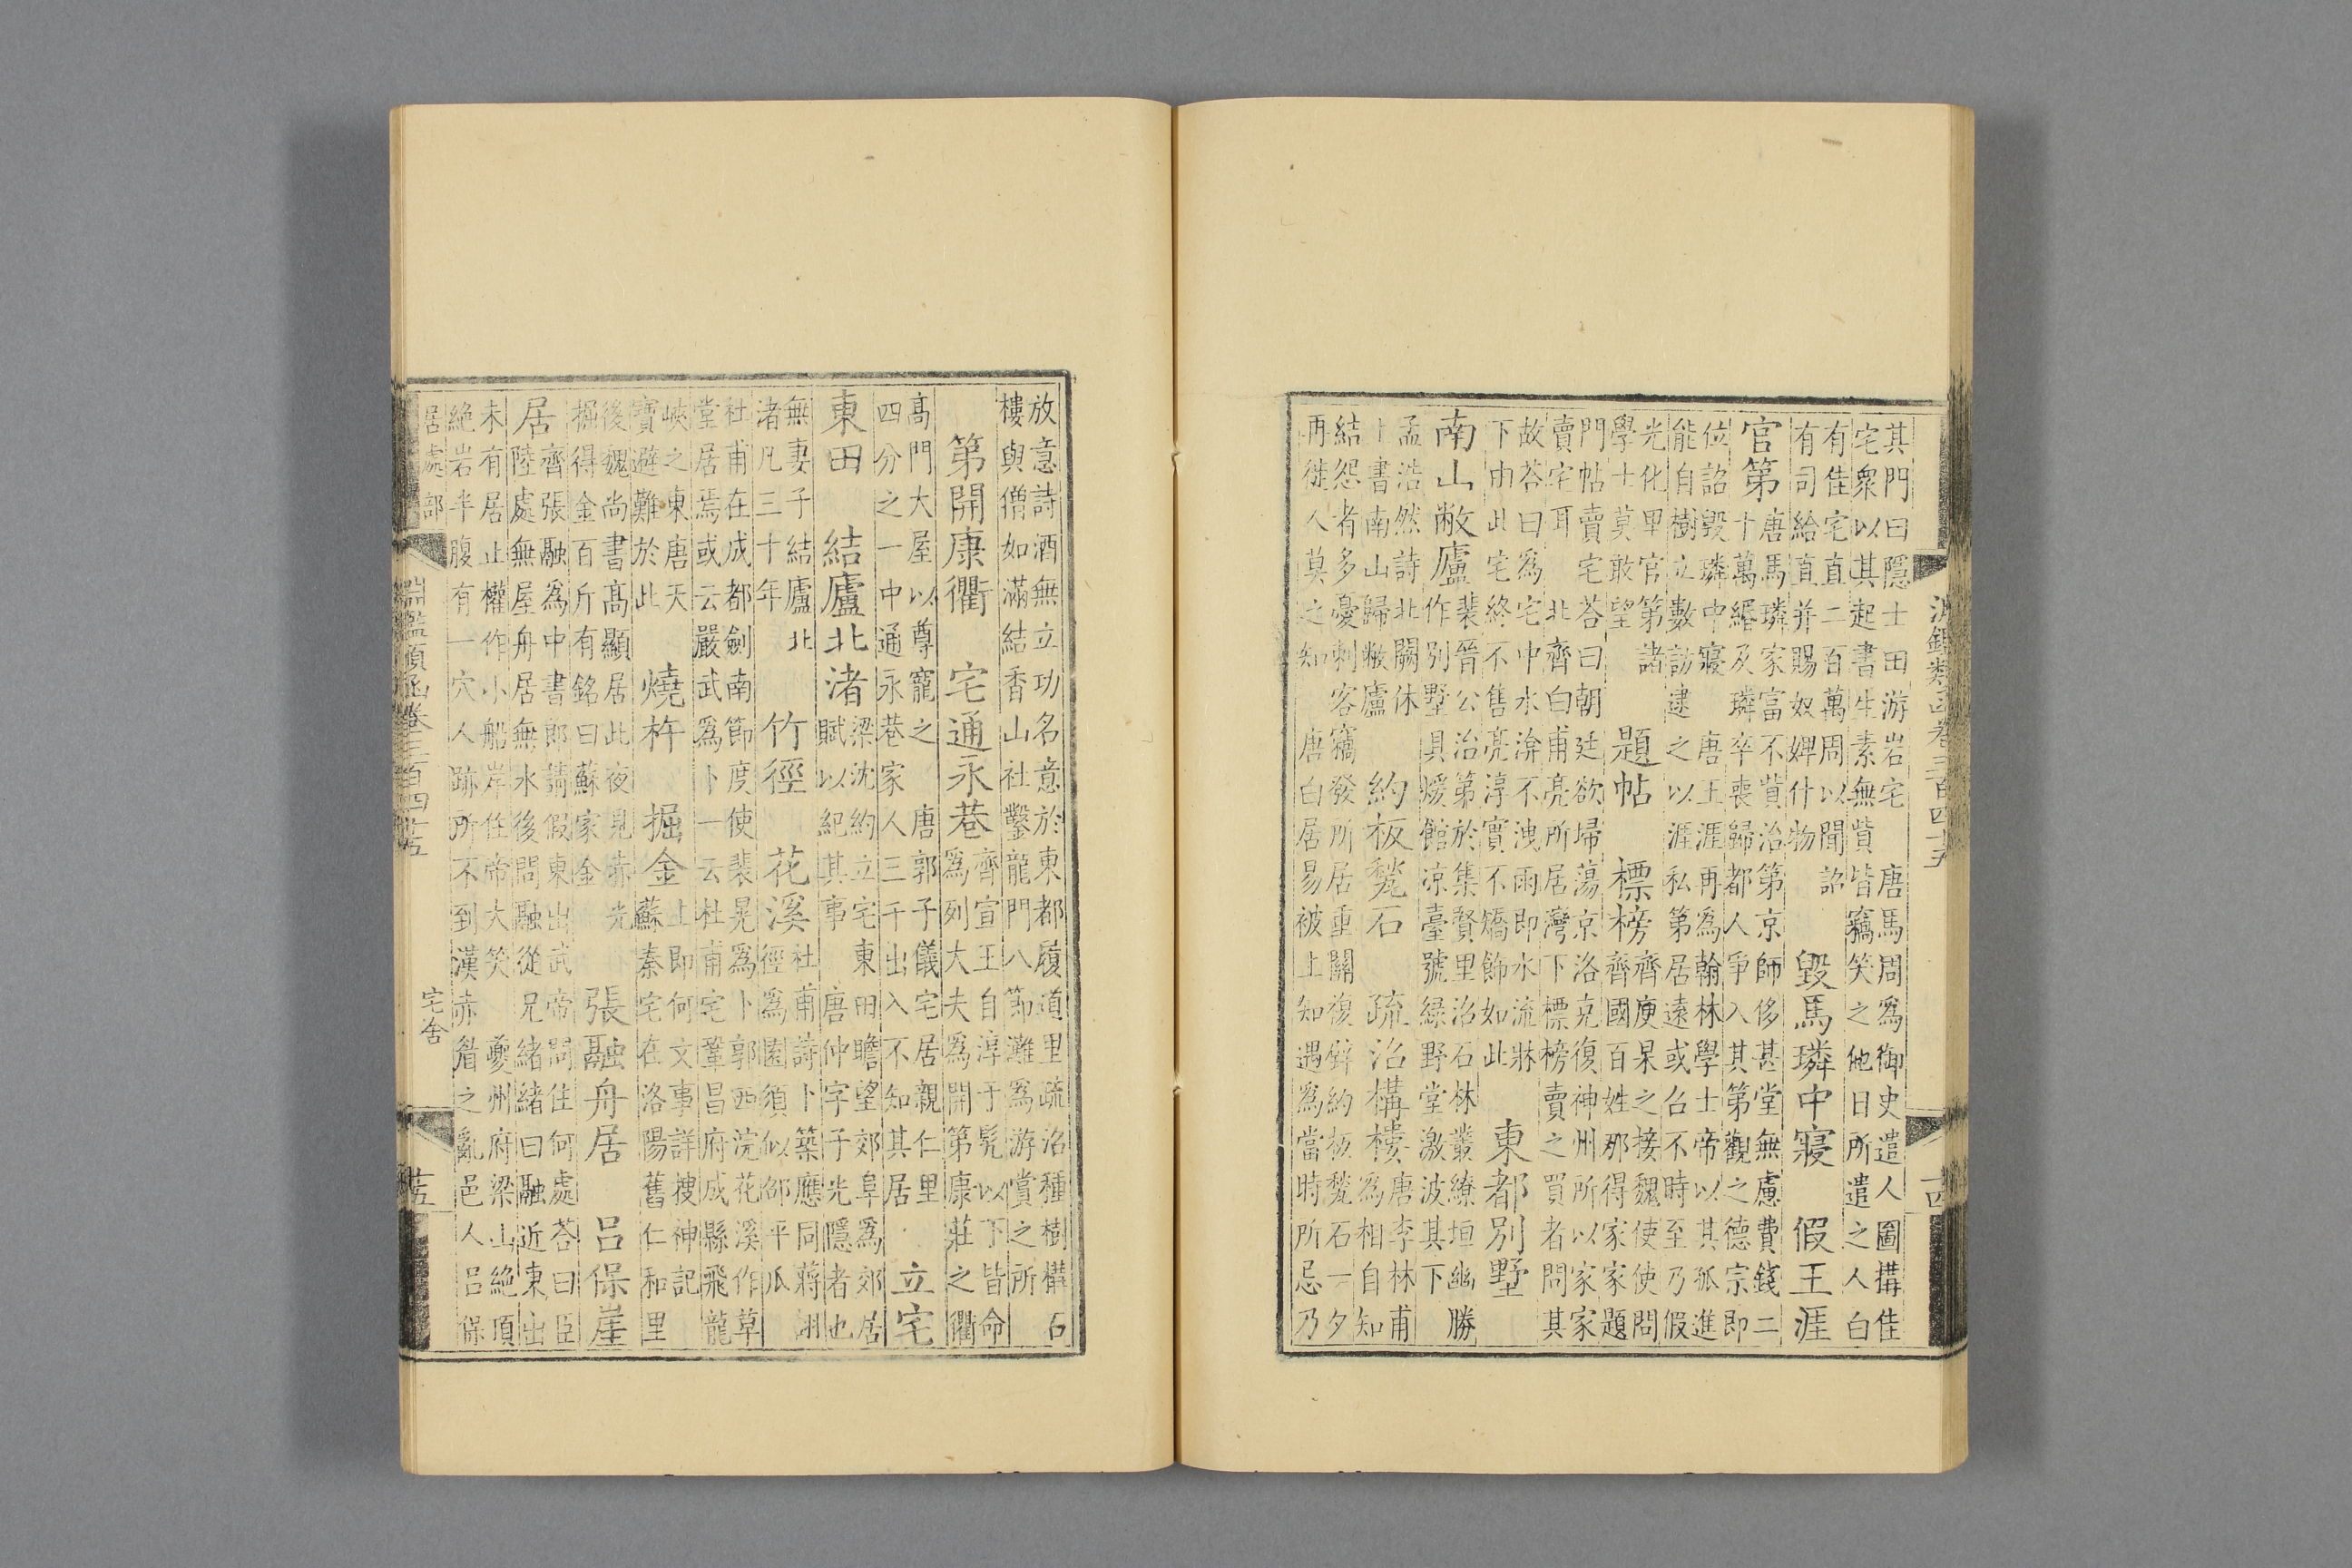 其門曰隱士田游岩宅　唐馬周為御史遣人圖構佳
宅衆以其起書生素無貲皆竊笑之他日所遣之人白
有佳宅直二百萬周以聞詔
有司給直并賜奴婢什物
毀馬璘中寢　假王涯
官第
唐馬璘家富不貲治第京師侈甚堂無慮費錢二
十萬緡及璘卒喪歸都人爭入其第觀之德宗即
位詔毀璘中寢　唐王涯再為翰林學士帝以其孤進
能自樹立數訪逮之以涯私第居遠或召不時至乃假
光化里官第諸
學士莫敢望
題帖　標榜
齊庾杲之接魏使使問
齊國百姓那得家家題
門帖賣宅荅曰朝廷欲埽蕩京洛克復神州所以家家
賣宅耳　北齊白甫亮所居灣下標榜賣之買者問其
故荅曰為宅中水渰不洩雨即水流牀
下由此宅終不售亮淳實不矯飾如此
東都別墅
南山敝廬
裴晉公治第於集賢里沼石林叢繚垣幽勝
作別墅具燠館涼臺號綠野堂激波其下
孟浩然詩北闕休
上書南山歸敝廬
約板甃石　疏沼構樓
唐李林甫
為相自知
結怨者多憂刺客竊發所居重關復壁約板甃石一夕
再徙人莫之知　唐白居易被上知遇爲當時所忌乃
淵鑑類函卷三百四十五
十四
放意詩酒無立功名意於東都履道里疏沼種樹構石
樓與僧如滿結香山社鑿龍門八節灘爲游賞之所
第開康衢　宅通永巷
齊宣王自淳于髡以下皆命
爲列大夫爲開第康莊之衢
高門大屋以尊寵之　唐郭子儀宅居親仁里
四分之一中通永巷家人三千出入不知其居
立宅
東田　結廬北渚
梁沈約立宅東田矚望郊阜爲郊居
賦以紀其事　唐仲字子光隱者也
無妻子結廬北
渚凡三十年
竹徑　花溪
杜甫詩卜築應同蔣詡
徑爲園須似邵平瓜
杜甫在成都劍南節度使裴冕爲卜郭西浣花溪作草
堂居焉或云嚴武爲卜一云杜甫宅鞏昌府成縣飛龍
峽之東唐天
寶避難於此
燒杵　掘金
上即何文事詳搜神記
蘇秦宅在洛陽舊仁和里
後魏尚書高顯居此夜見赤光
掘得金百斤有銘曰蘇家金
張融舟居　呂保崖
居
齊張融爲中書郎請假東出武帝問住何處荅曰臣
陸處無屋舟居無水後問融從兄緒緒曰融近東出
未有居止權作小船岸住帝大笑　夔州府梁山絕頂
絕岩半腹有一穴人跡所不到漢赤眉之亂邑人呂保
居處部　宅舍
淵鑑類函卷三百四十五
十五